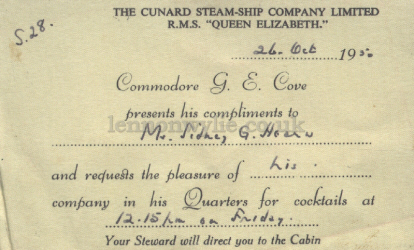 THE CUNARD STEAM-SHIP COMPANY LIMITED
R.M.S. "QUEEN ELIZABETH."
S.28.
26. Oct 1950
Commodore G. E. Cove
presents his compliments to
lennonwylie.co.uk
Mr. Sidney G.
and requests the pleasure of his.
company in his Quarters for cocktails at
12.15pm on Friday.
Your Steward will direct you to the Cabin